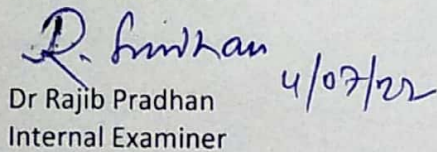 R. Pradhan 4/07/22
Dr Rajib Pradhan
Internal Examiner